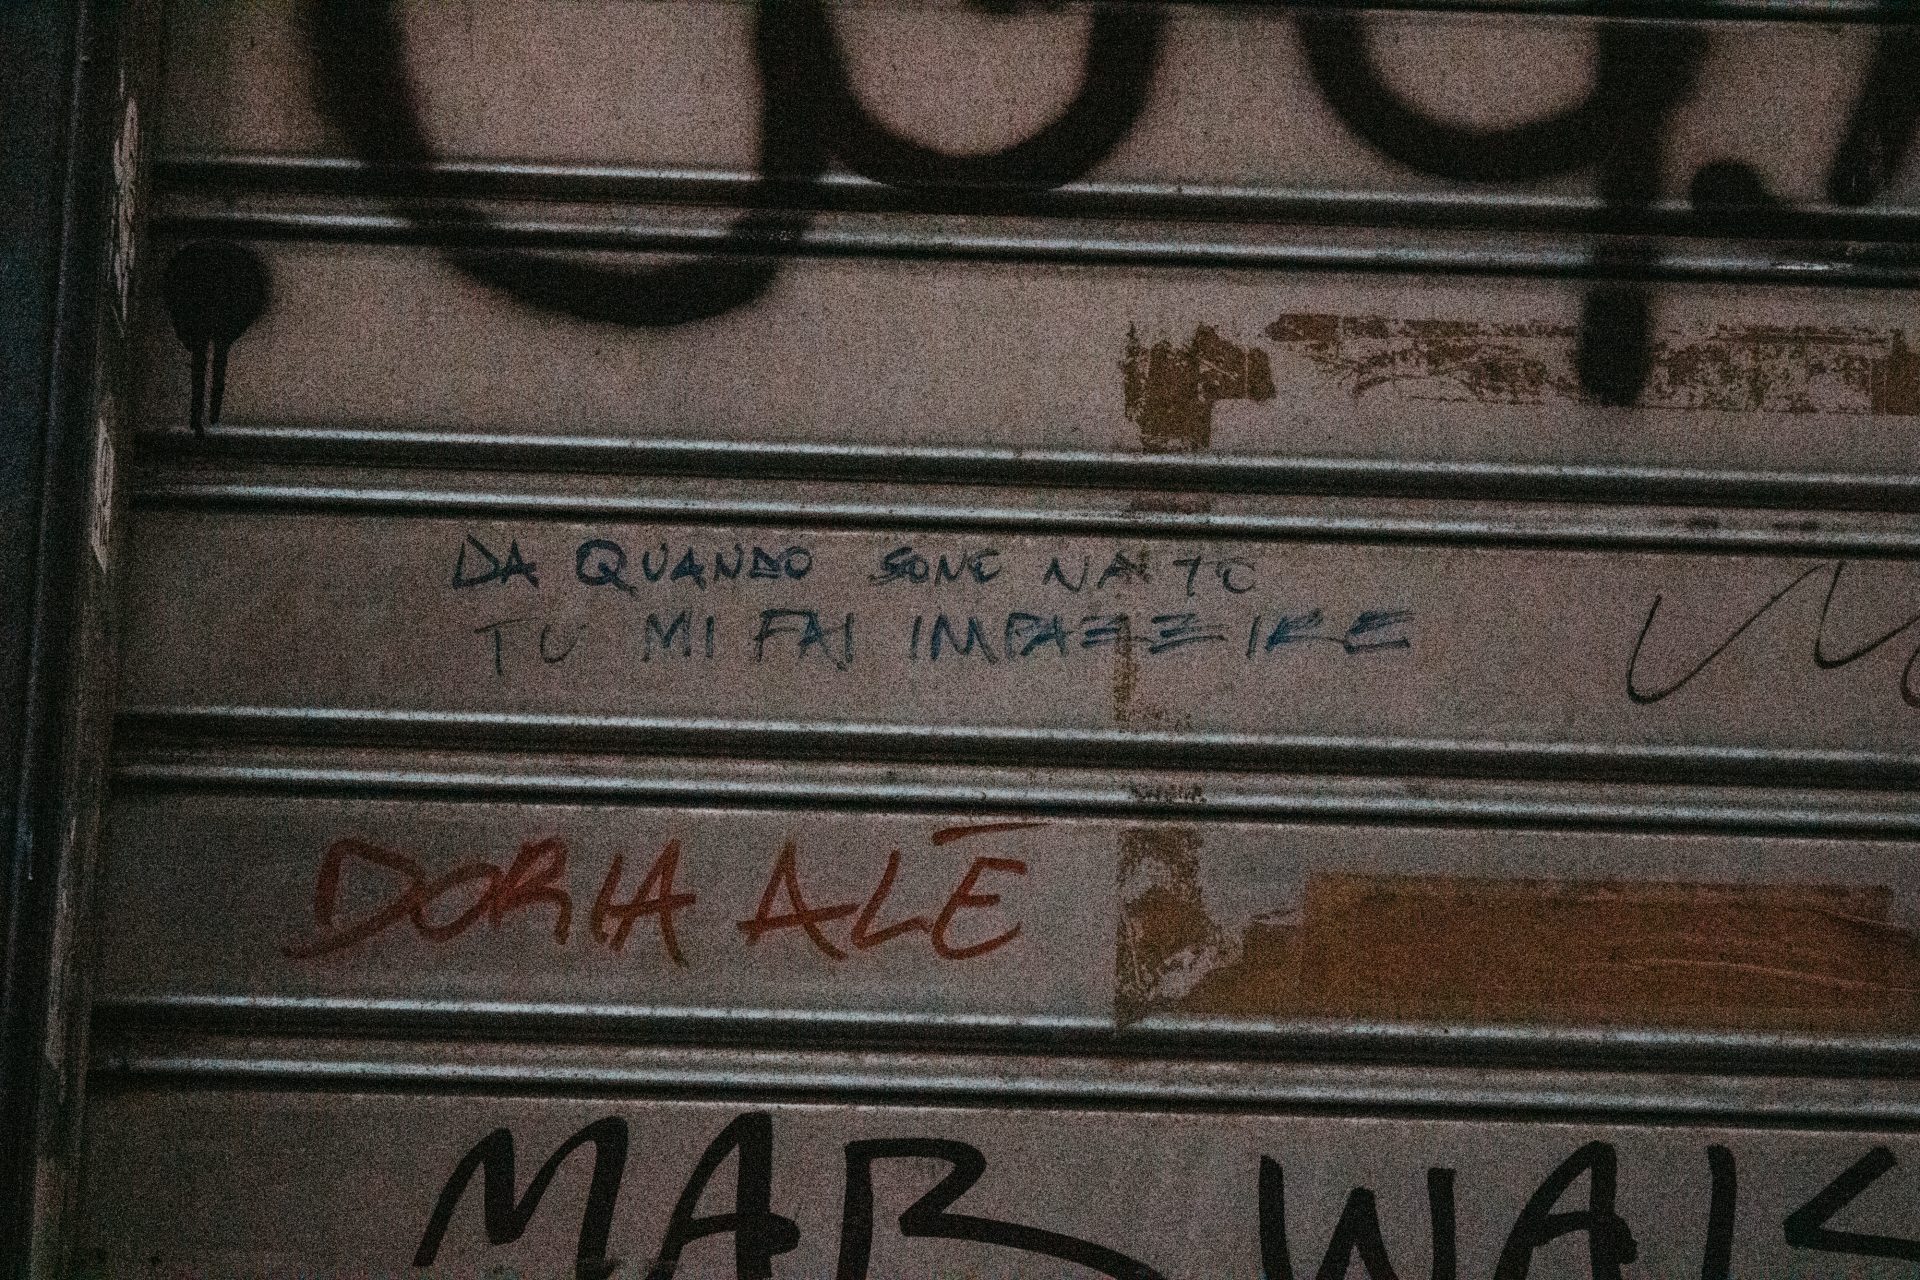 DA QUANDO SONO NATO
TU MI FAI IMPAZZIRE
DORIA ALÉ
MAR WAIK